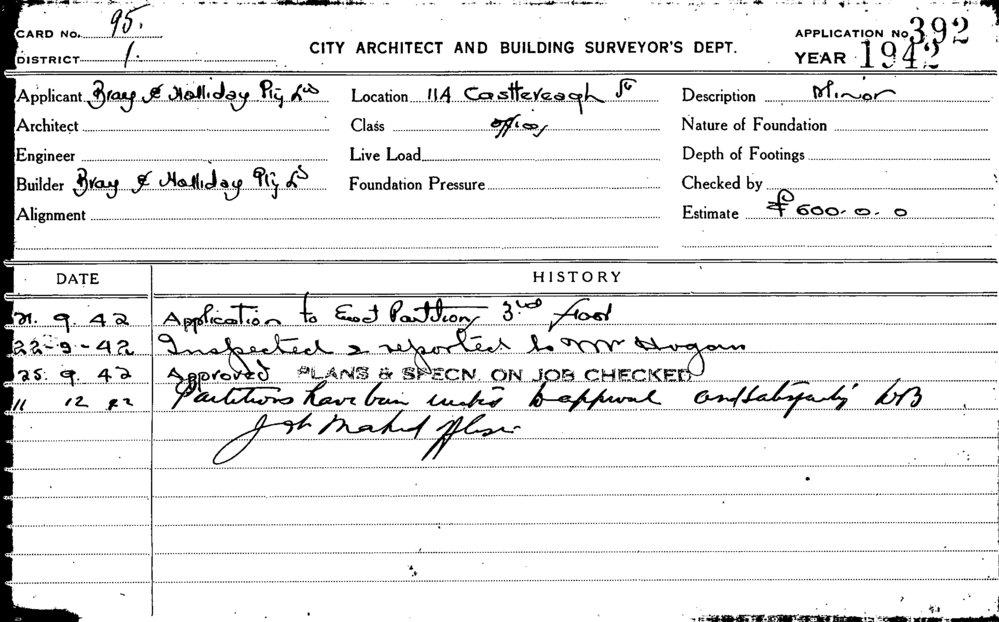 CARD No. 95.
DISTRICT 1.
CITY ARCHITECT AND BUILDING SURVEYOR'S DEPT.
APPLICATION No 392
YEAR 1942
Applicant Bray & Halliday Pty Ld Location 114 Castlereagh St Description Minor
Architect Class offices Nature of Foundation
Engineer Live Load Depth of Footings
Builder Bray & Halliday Pty Ld Foundation Pressure Checked by
Alignment Estimate £600.0.0
DATE HISTORY
21. 9. 42 Application to Erect Partitions 3rd floor
22-9-42 Inspected & reported to Mr Hogan
25. 9. 42 Approved PLANS & SPECN. ON JOB CHECKED
11 12 42 Partitions have been to approval and
Job Marked